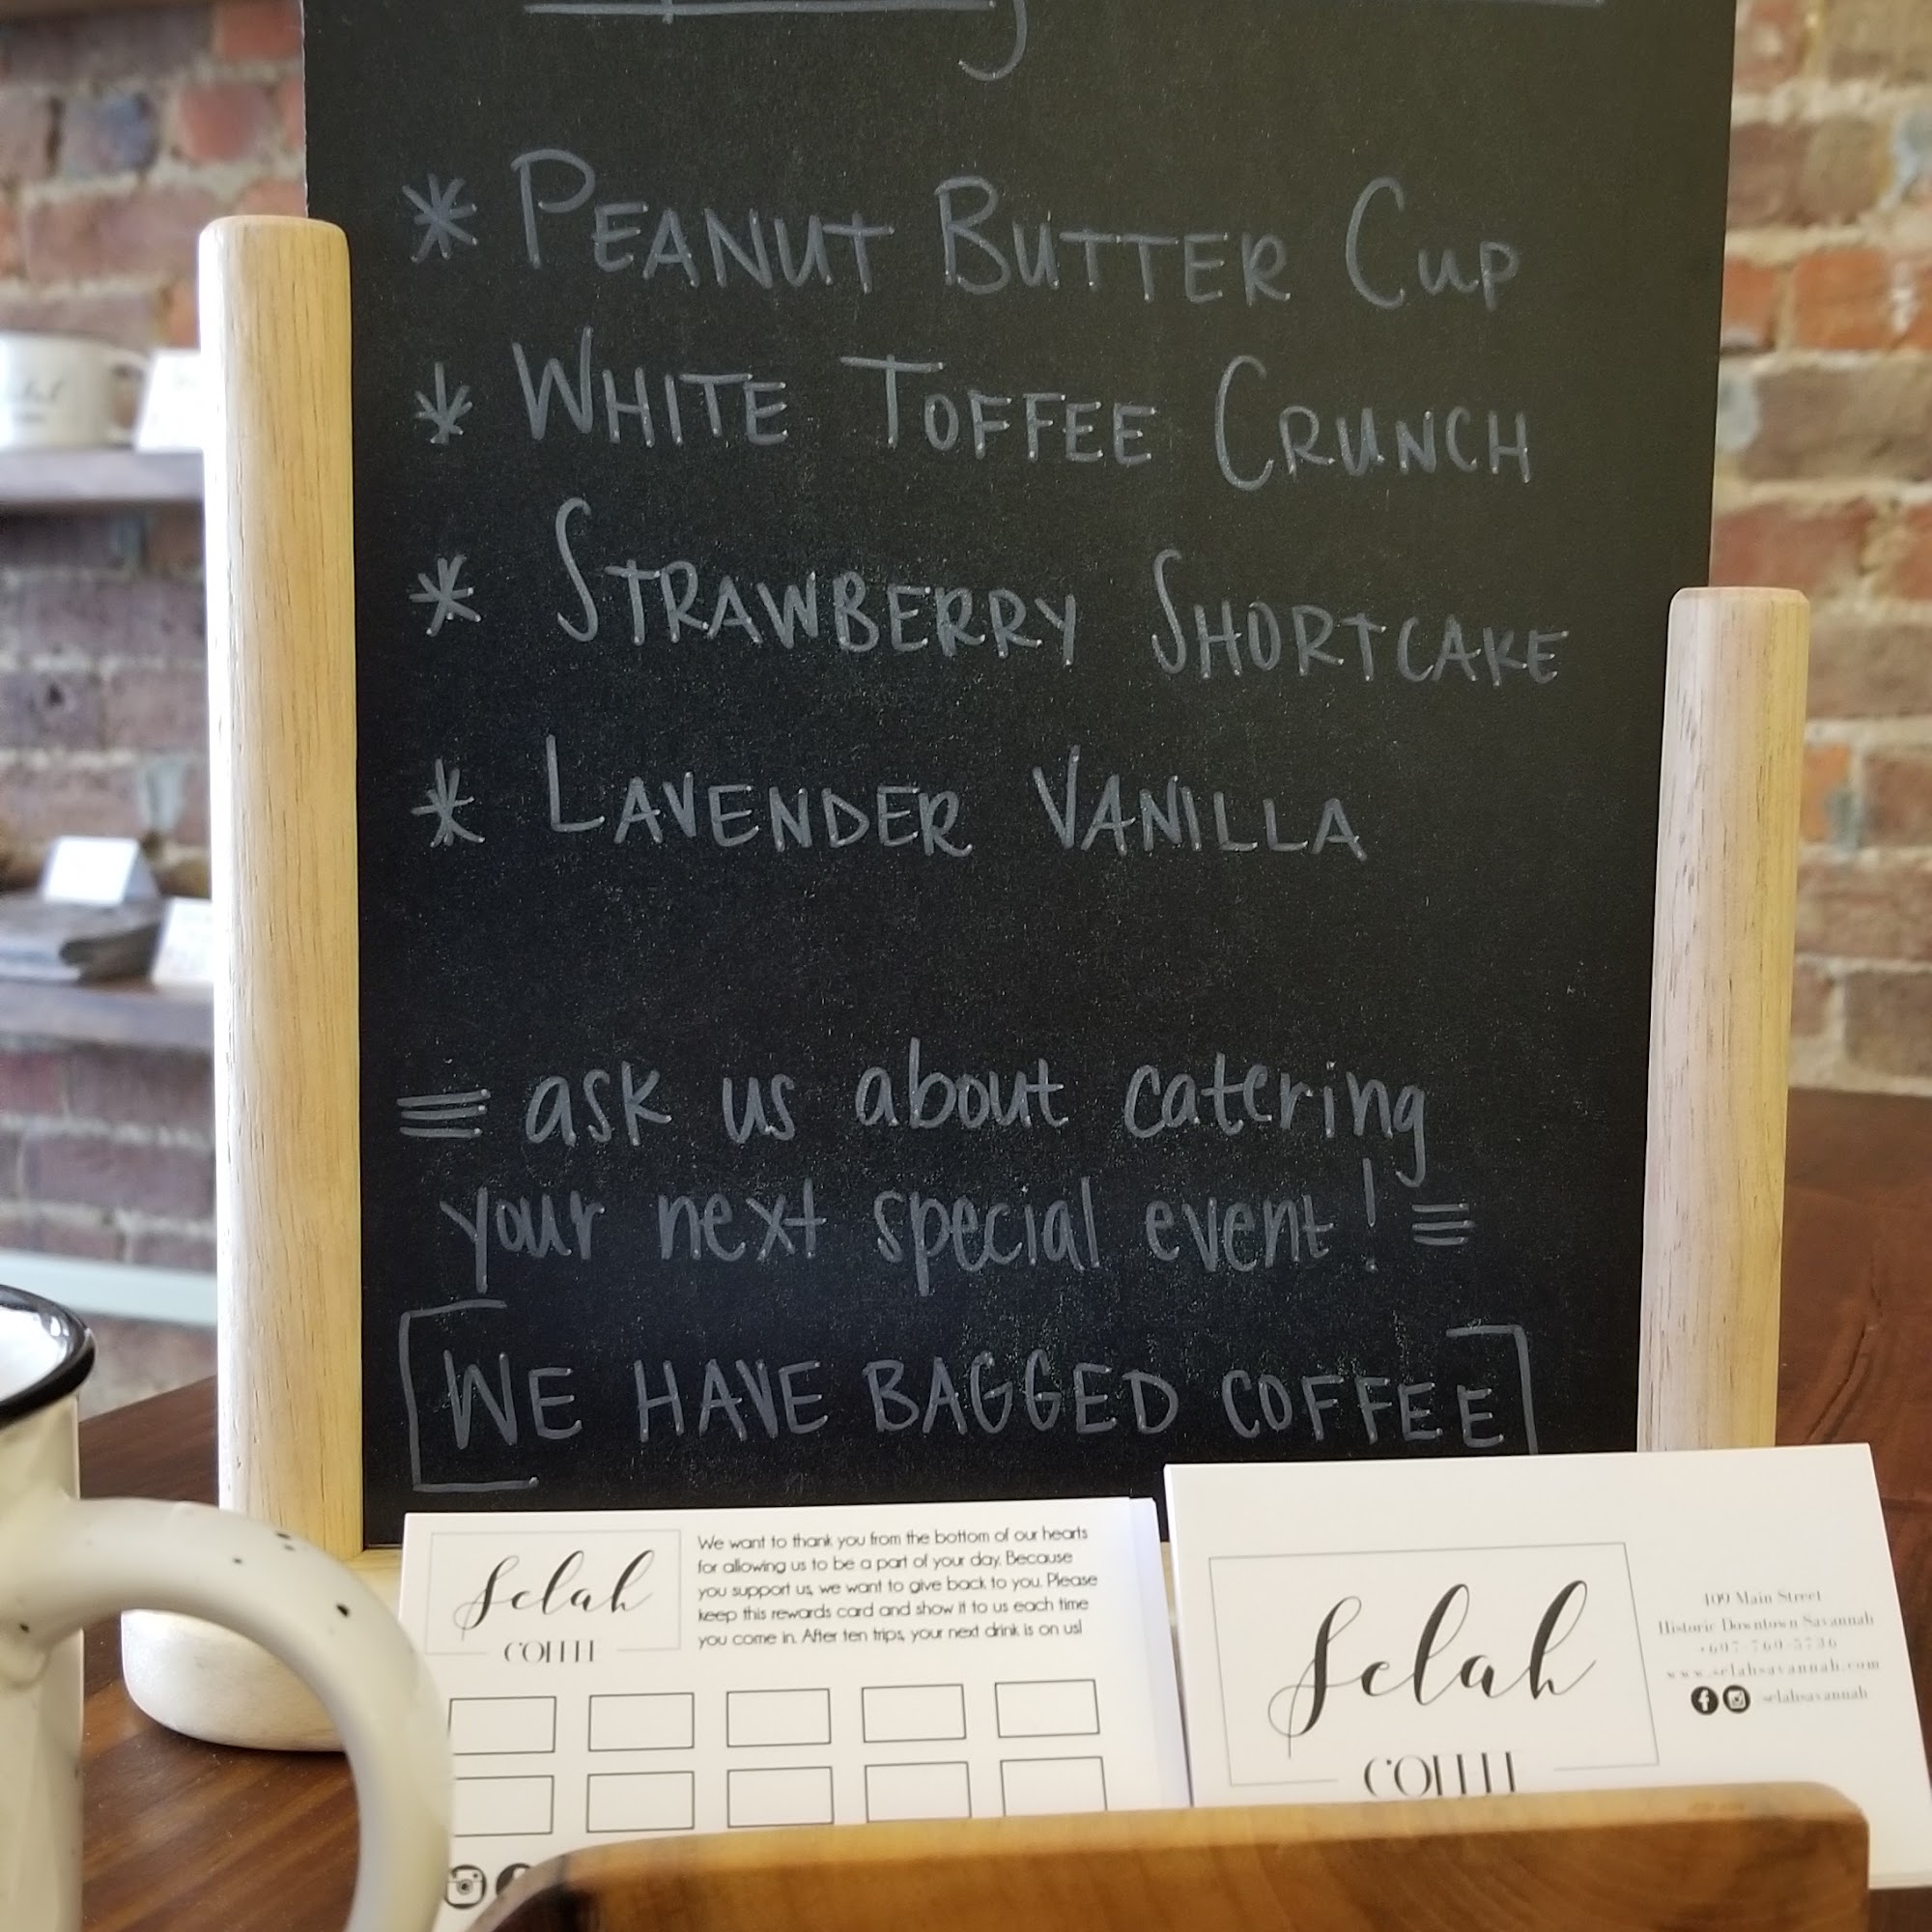 * PEANUT BUTTER CUP
* WHITE TOFFEE CRUNCH
* STRAWBERRY SHORTCAKE
* LAVENDER VANILLA
ask us about catering
your next special event!
WE HAVE BAGGED COFFEE
Selah
COFFEE
We want to thank you from the bottom of our hearts
for allowing us to be a part of your day. Because
you support us, we want to give back to you. Please
keep this rewards card and show it to us each time
you come in. After ten trips, your next drink is on us!
Selah
COFFEE
109 Main Street
Historic Downtown Savannah
www.selahsavannah.com
selahsavannah